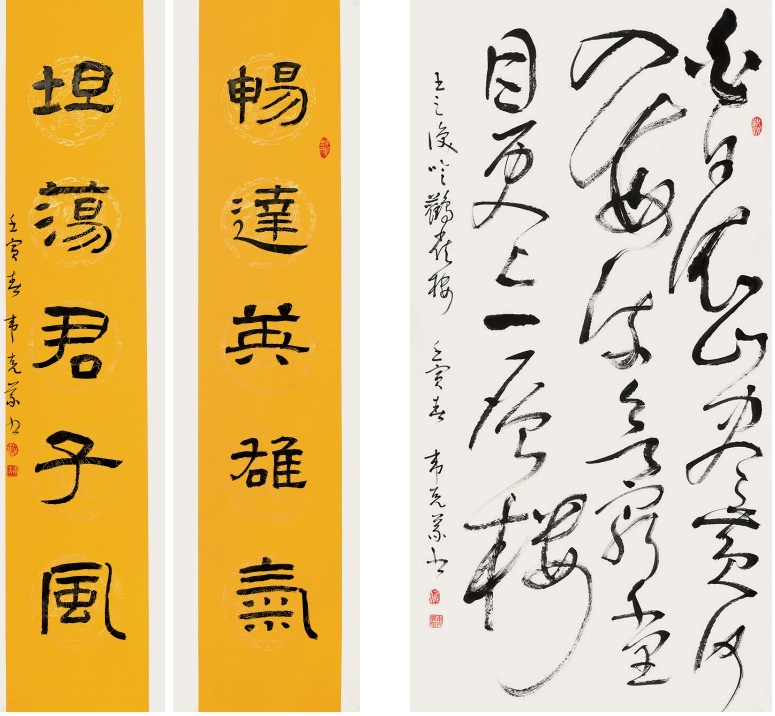 暢達英雄氣
坦蕩君子風
壬寅春 韦克 书
白日依山尽黄河
入海流欲窮千里
目更上一层楼
王之涣 鹳雀楼 壬寅春 韦克 书